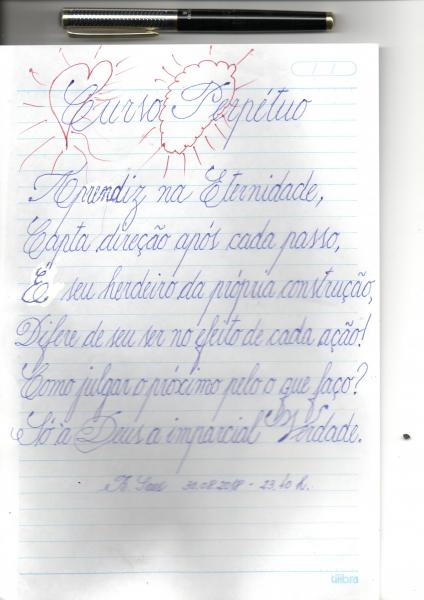 Curso Perpétuo
Aprendiz na Eternidade,
Capta direção após cada passo,
É seu herdeiro da própria construção,
Difere de seu ser no efeito de cada ação!
Como julgar o próximo pelo o que faço?
Só à Deus a imparcial Verdade.
30.08.2018 - 23:40 h.